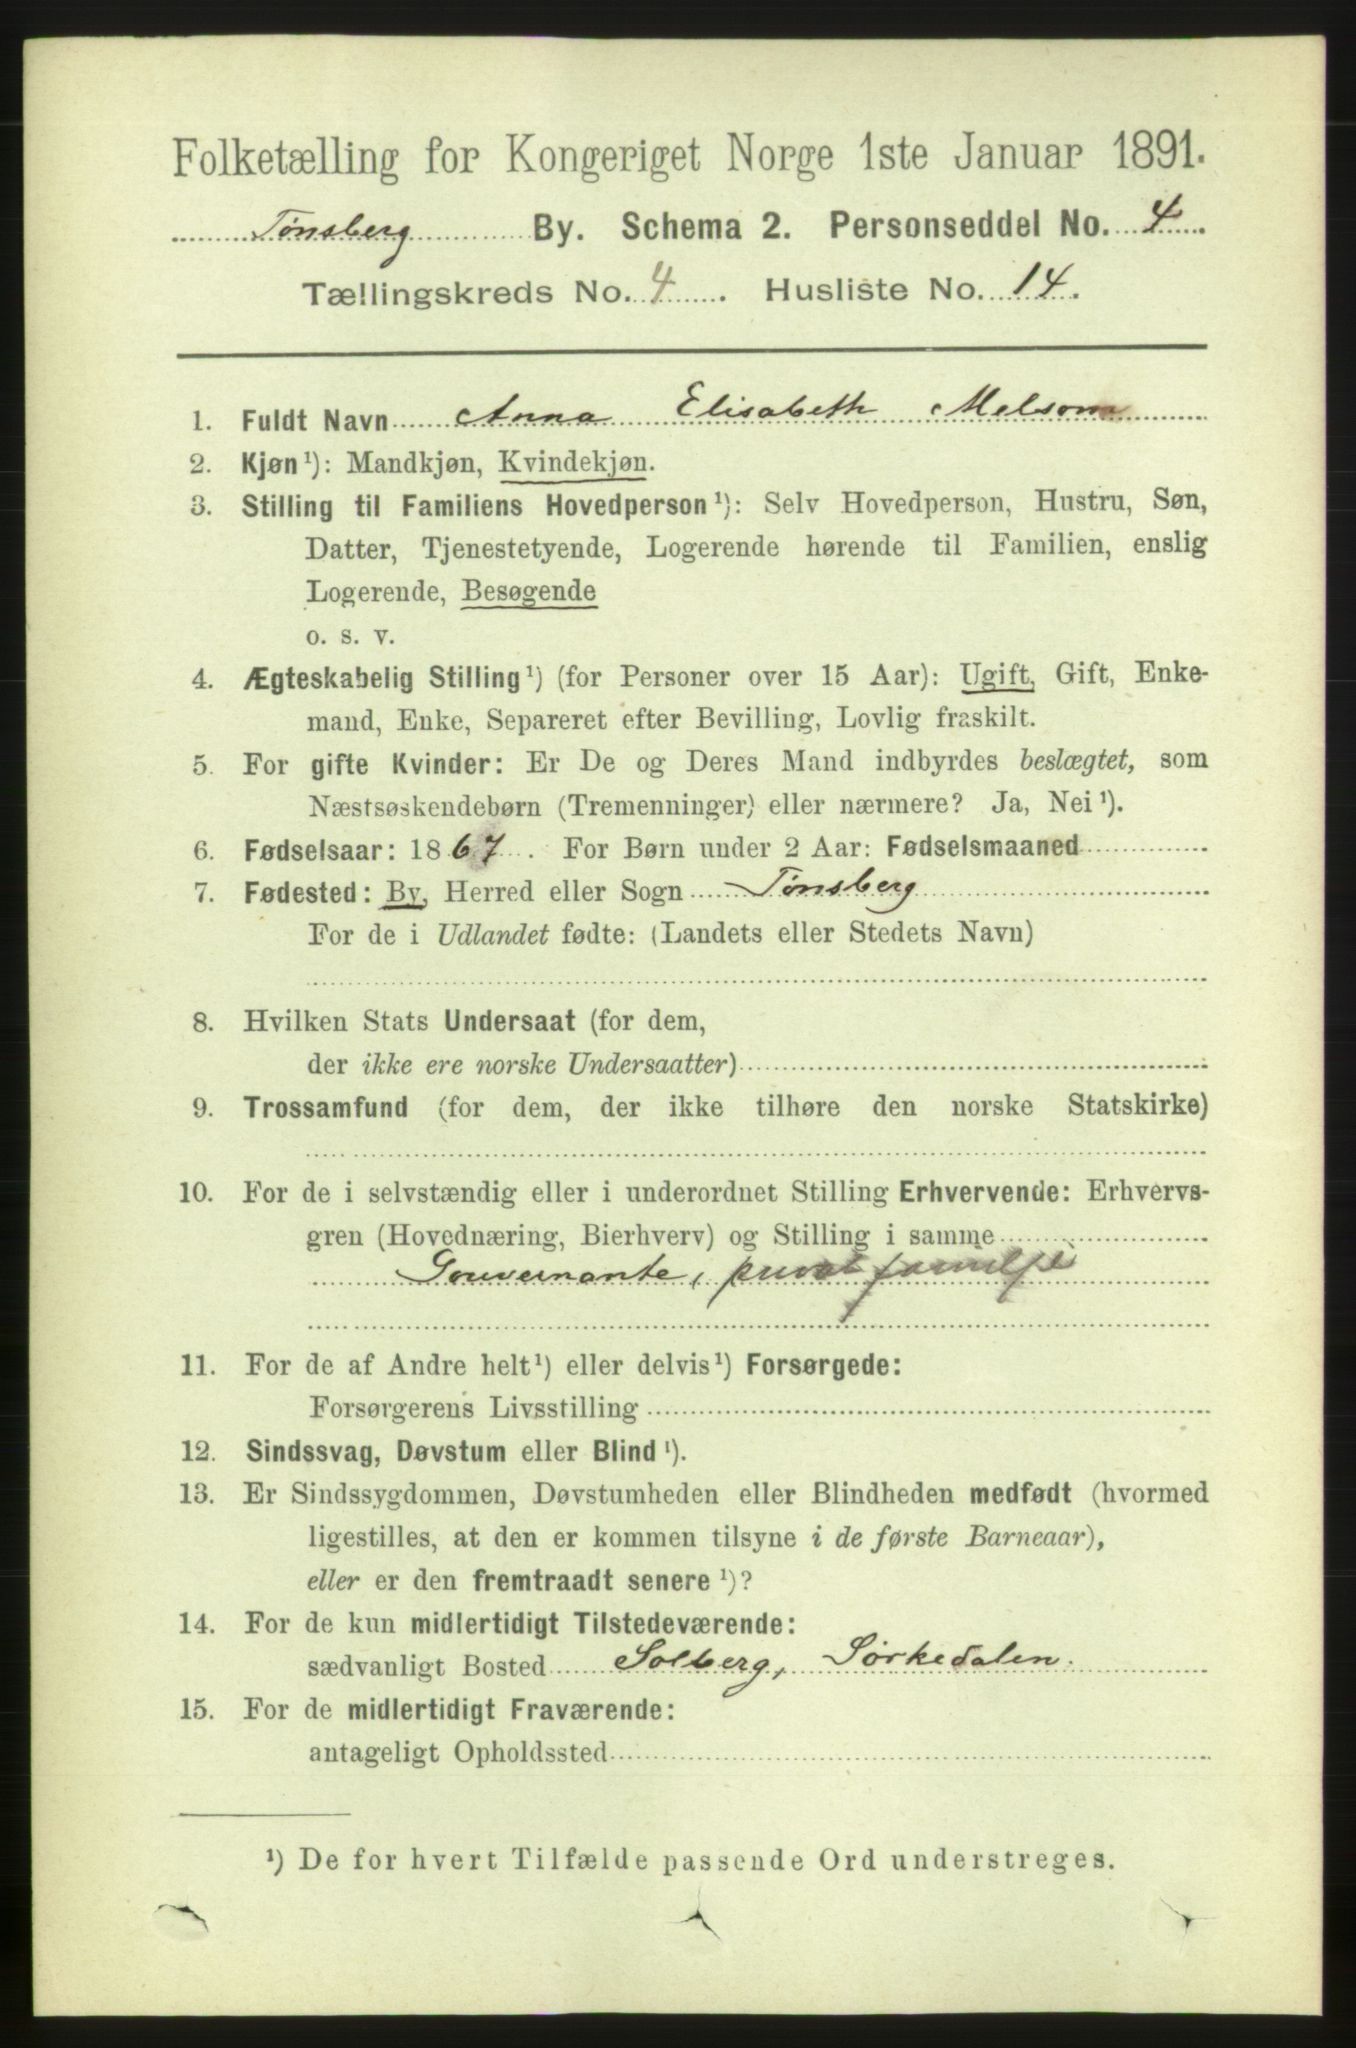 Folketælling for Kongeriget Norge 1ste Januar 1891.
Tønsberg By. Schema 2. Personseddel No. 4.
Tællingskreds No. 4. Husliste No. 14.
1. Fuldt Navn Anna Elisabeth Melsom
2. Kjøn ¹): Mandkjøn, Kvindekjøn.
3. Stilling til Familiens Hovedperson ¹): Selv Hovedperson, Hustru, Søn,
Datter, Tjenestetyende, Logerende hørende til Familien, enslig
Logerende, Besøgende
o. s. v.
4. Ægteskabelig Stilling ¹) (for Personer over 15 Aar): Ugift, Gift, Enke-
mand, Enke, Separeret efter Bevilling, Lovlig fraskilt.
5. For gifte Kvinder: Er De og Deres Mand indbyrdes beslægtet, som
Næstsøskendebørn (Tremenninger) eller nærmere? Ja, Nei ¹).
6. Fødselsaar: 1867. For Børn under 2 Aar: Fødselsmaaned
7. Fødested: By, Herred eller Sogn Tønsberg
For de i Udlandet fødte: (Landets eller Stedets Navn)
8. Hvilken Stats Undersaat (for dem,
der ikke ere norske Undersaatter)
9. Trossamfund (for dem, der ikke tilhøre den norske Statskirke)
10. For de i selvstændig eller i underordnet Stilling Erhvervende: Erhvervs-
gren (Hovednæring, Bierhverv) og Stilling i samme
Gouvernante, privat familje
11. For de af Andre helt ¹) eller delvis ¹) Forsørgede:
Forsørgerens Livsstilling
12. Sindssvag, Døvstum eller Blind ¹).
13. Er Sindssygdommen, Døvstumheden eller Blindheden medfødt (hvormed
ligestilles, at den er kommen tilsyne i de første Barneaar),
eller er den fremtraadt senere ¹)?
14. For de kun midlertidigt Tilstedeværende:
sædvanligt Bosted Solberg, Sørkedalen.
15. For de midlertidigt Fraværende:
antageligt Opholdssted
¹) De for hvert Tilfælde passende Ord understreges.